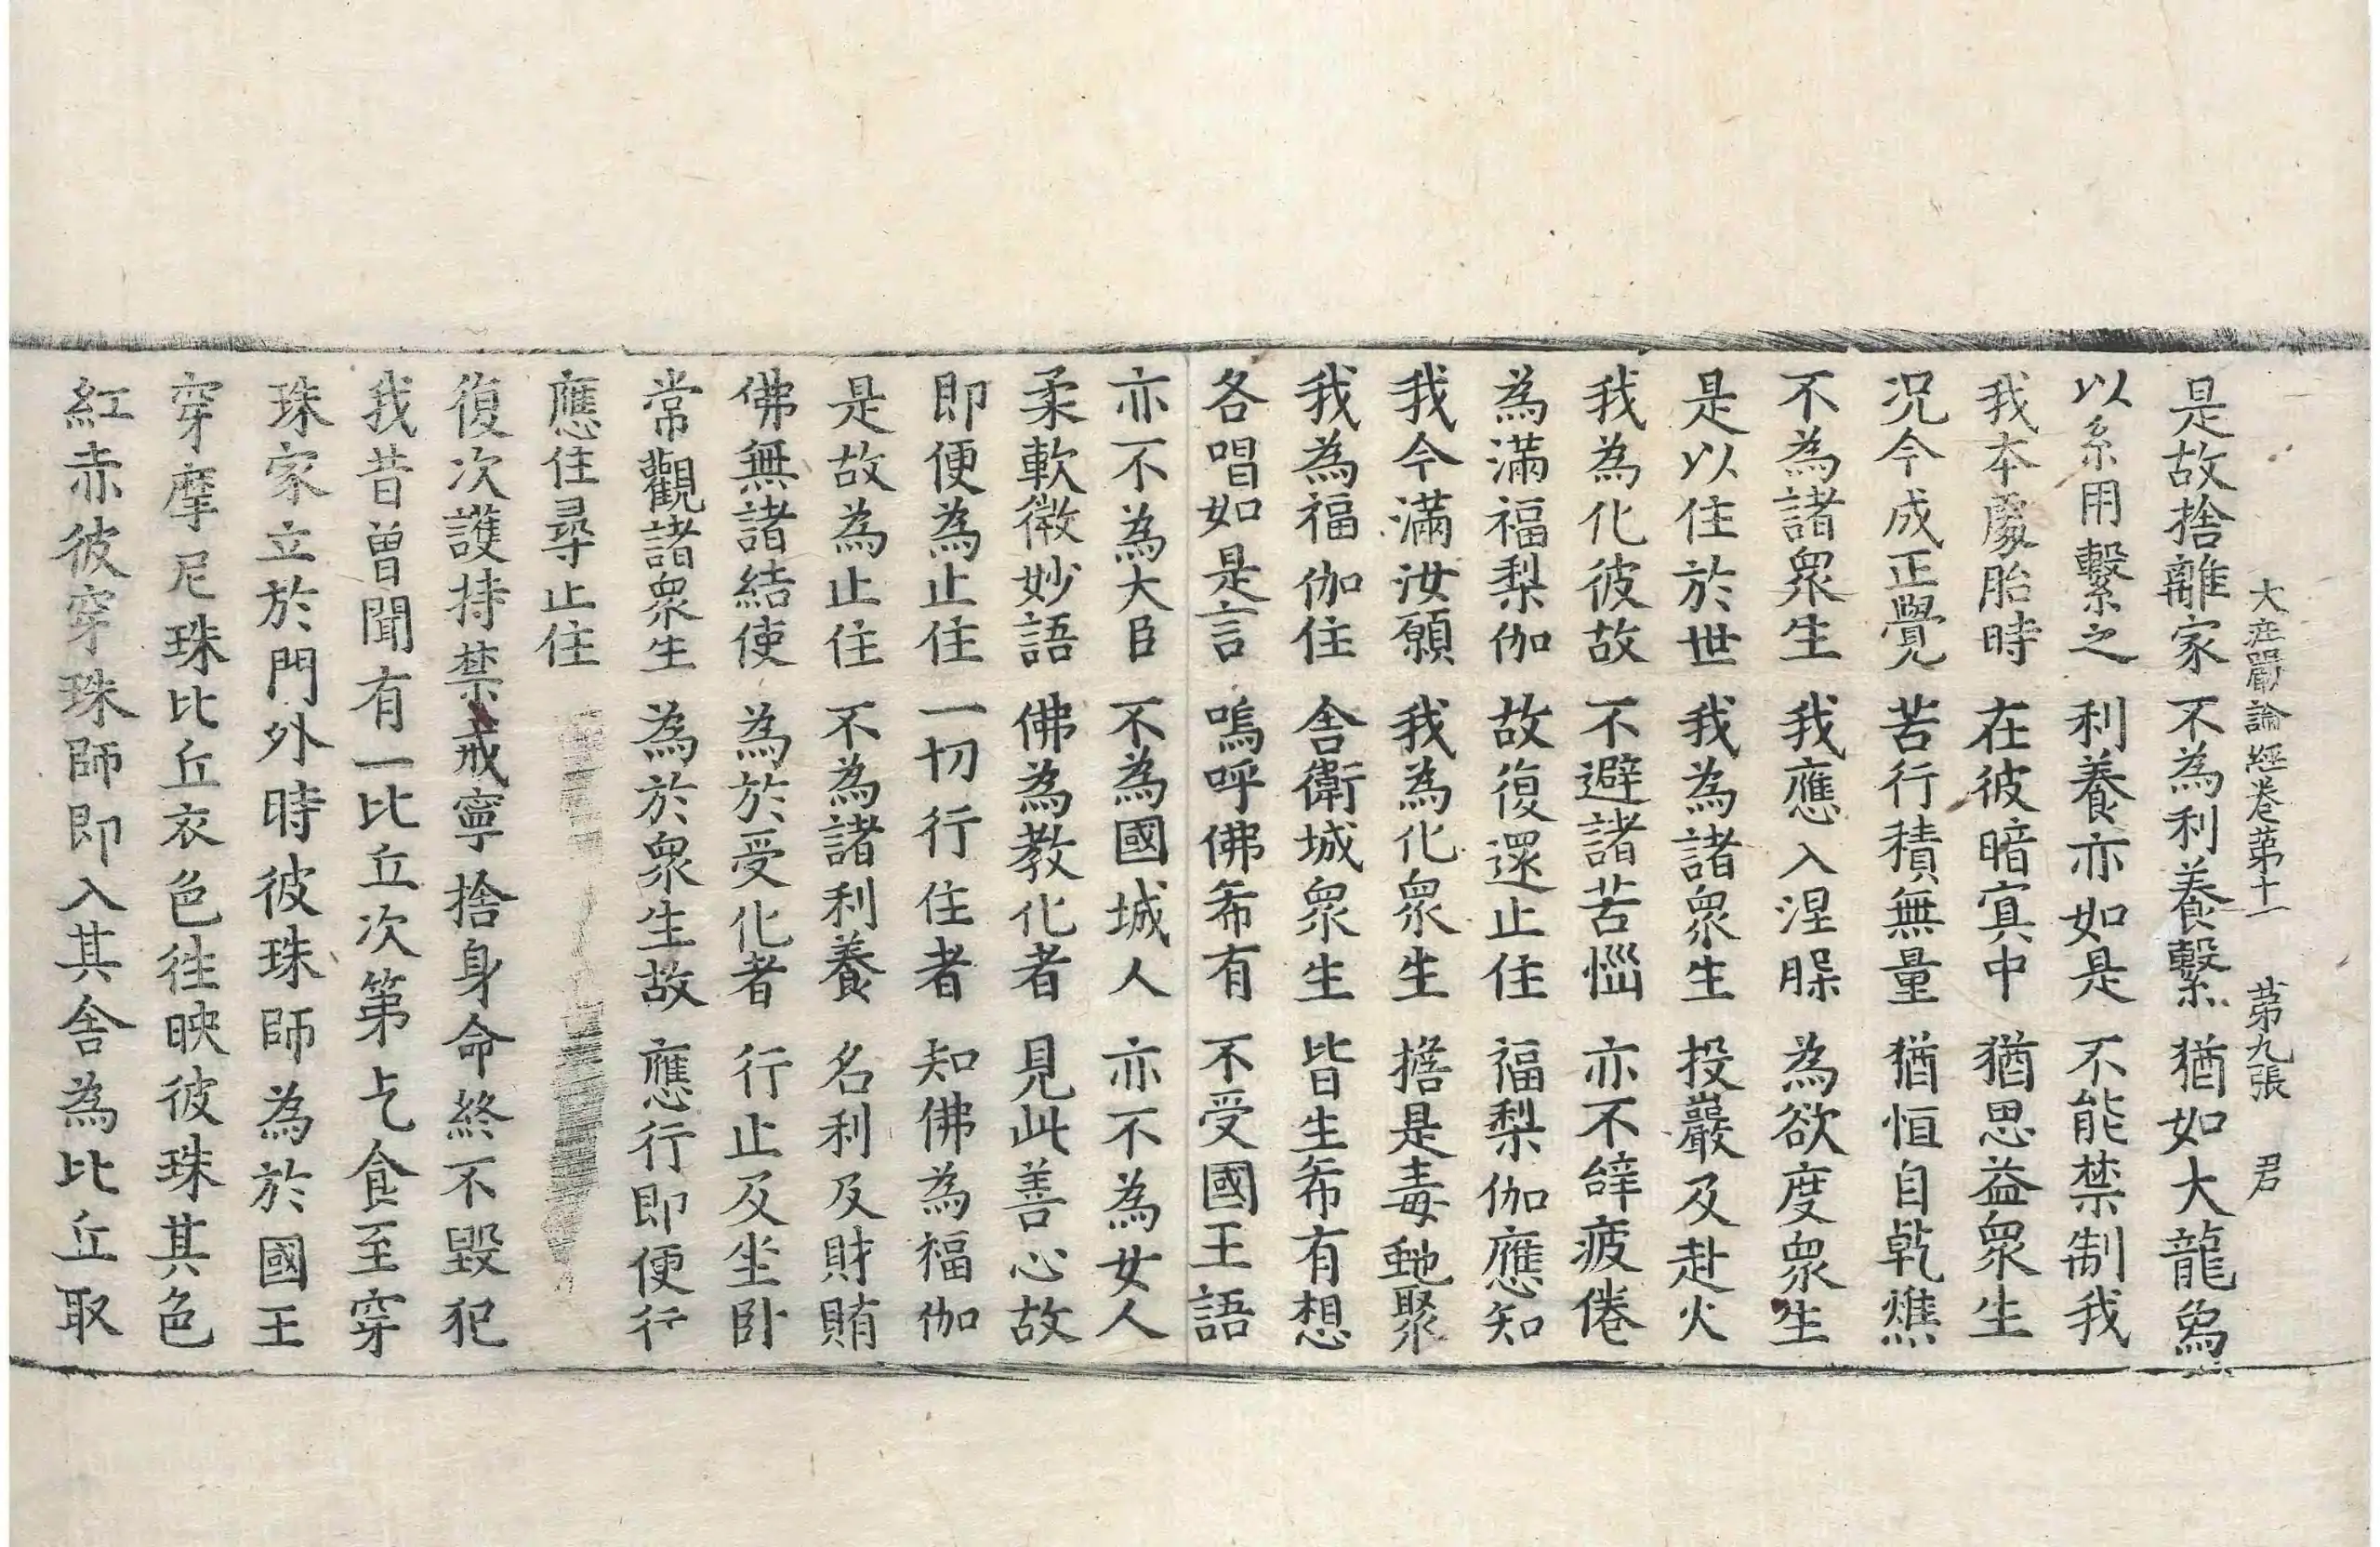 大庄嚴論經卷第十一 第九張 君
是故捨離家 不為利養繫 猶如大龍象
以系用繫之 利養亦如是 不能禁制我
我本處胎時 在彼暗冥中 猶思益衆生
況今成正覺 苦行積無量 猶恒自乾燋
不為諸衆生 我應入涅槃 為欲度衆生
是以住於世 我為諸衆生 投巖及赴火
我為化彼故 不避諸苦惱 亦不辝疲倦
為滿福梨伽 故復還止住 福梨伽應知
我今滿汝願 我為化衆生 擔是毒虵聚
我為福伽住 舍衛城衆生 皆生希有想
各唱如是言 嗚呼佛希有 不受國王語
亦不為大臣 不為國城人 亦不為女人
柔軟微妙語 佛為教化者 見此善心故
即便為止住 一切行住者 知佛為福伽
是故為止住 不為諸利養 名利及財賄
佛無諸結使 為於受化者 行止及坐卧
常觀諸衆生 為於衆生故 應行即便行
應住尋止住
復次護持禁戒寧捨身命終不毀犯
我昔曾聞有一比丘次第乞食至穿
珠家立於門外時彼珠師為於國王
穿摩尼珠比丘衣色往映彼珠其色
紅赤彼穿珠師即入其舍為比丘取